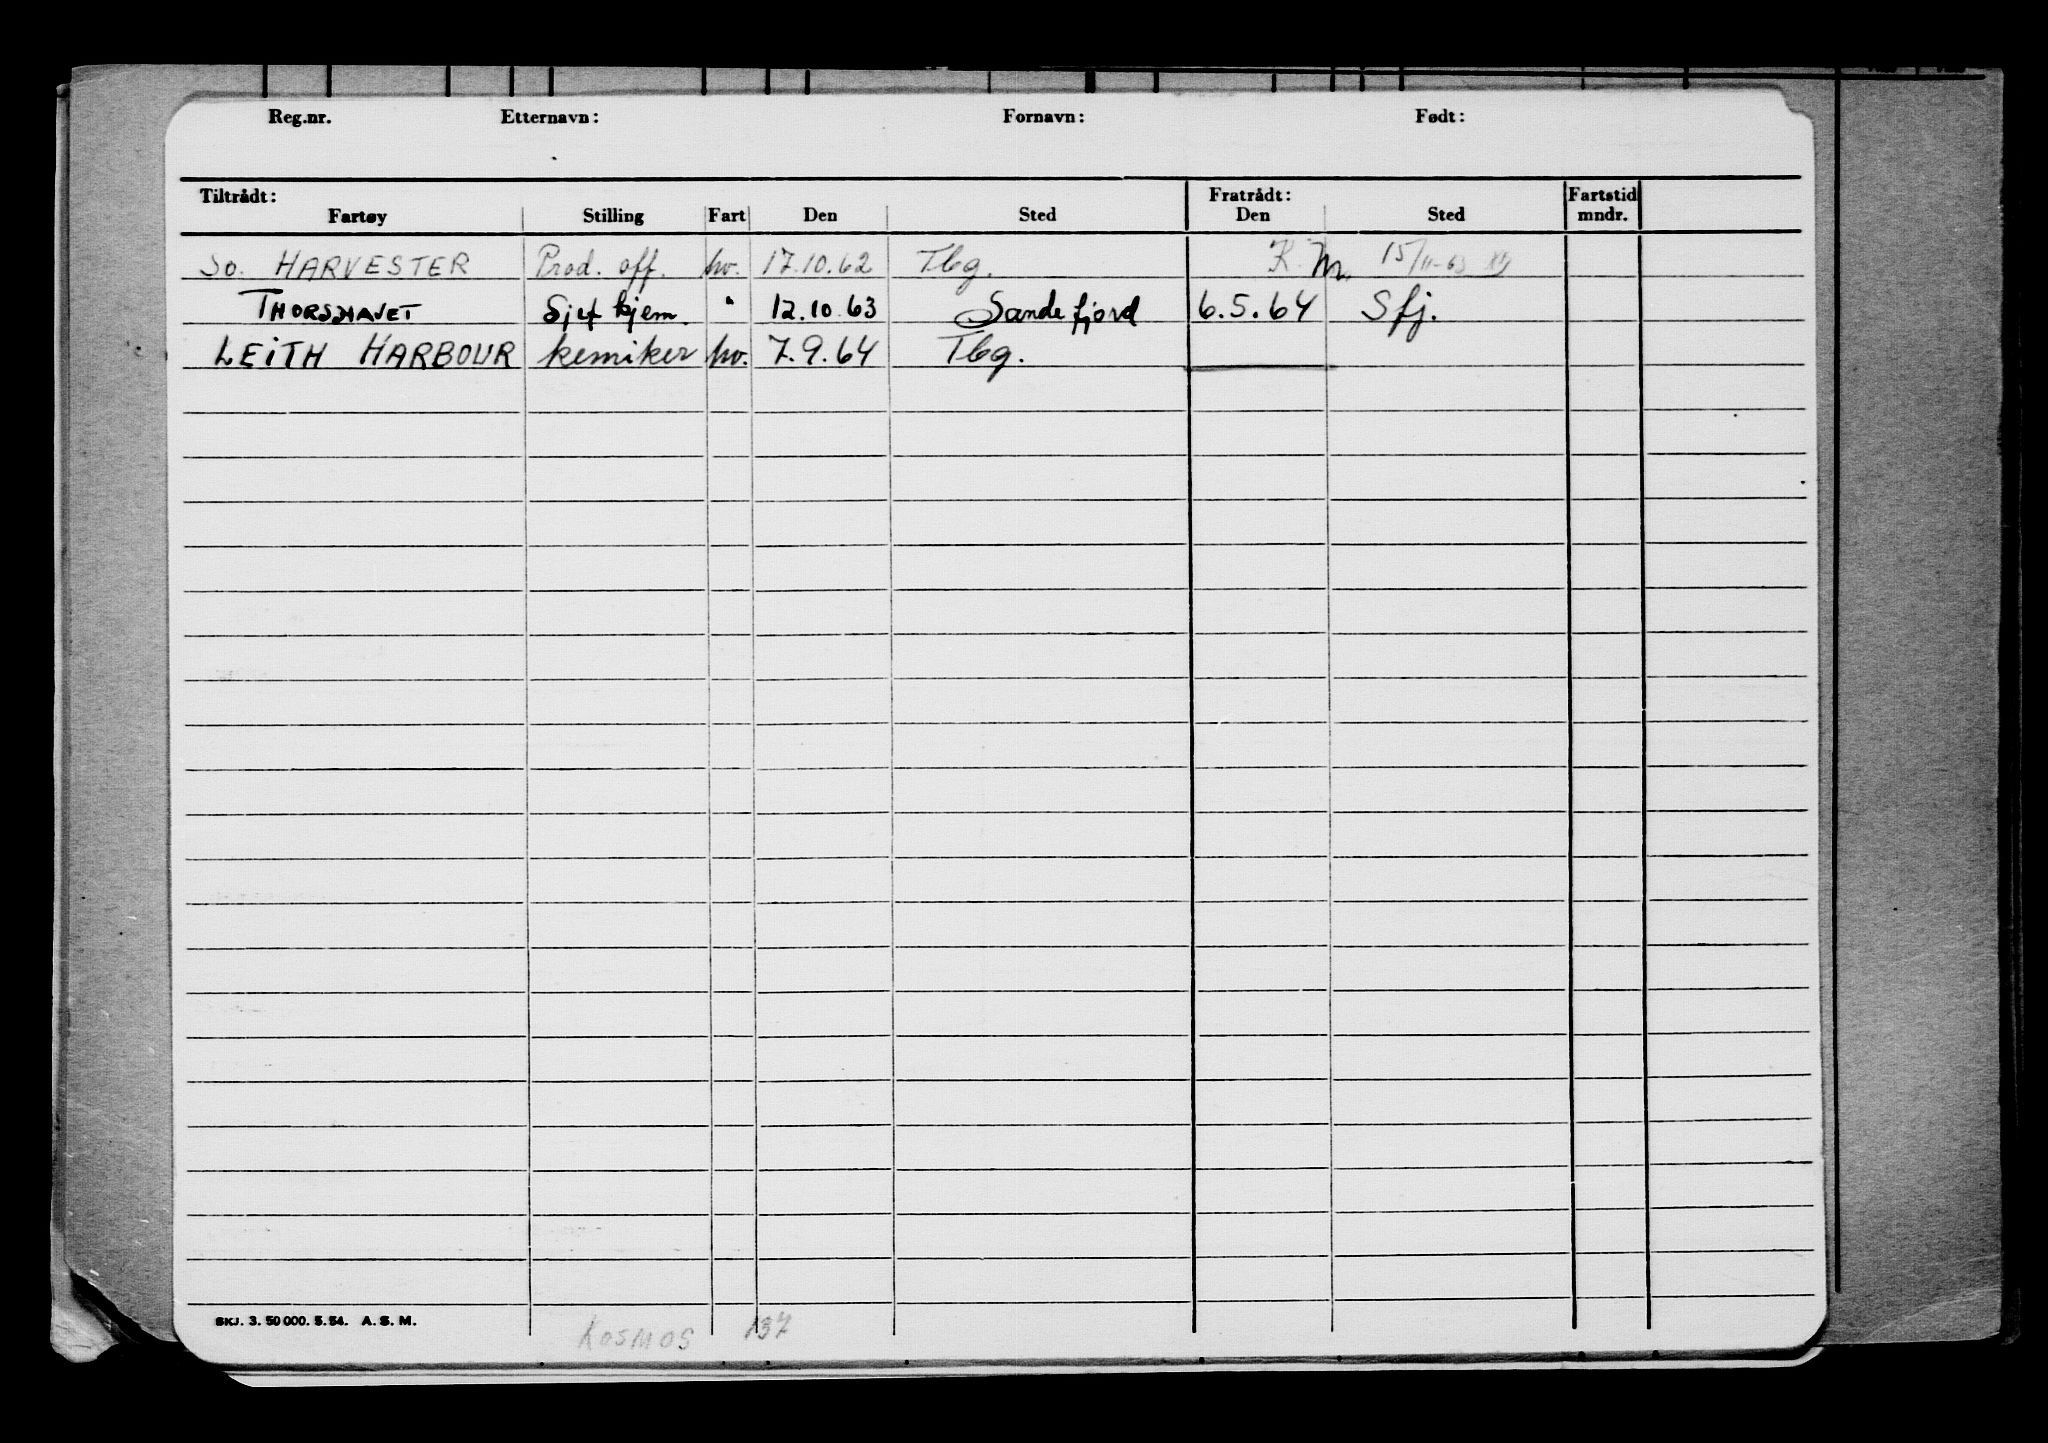 Reg.nr. Etternavn: Fornavn: Født:
Tiltrådt: Fratrådt: Fartstid
Fartøy Stilling Fart Den Sted Den Sted mndr.
So. HARVESTER Prod. off. hv. 17.10.62 Tbg. K. M. 15/
THORSHAVET Sjef kjem. " 12.10.63 Sandefjord 6.5.64 Sfj.
LEITH HARBOUR kemiker hv. 7.9.64 Tbg.
SKJ. 3. 50 000. 5. 54. A. S. M.
KOSMOS 137